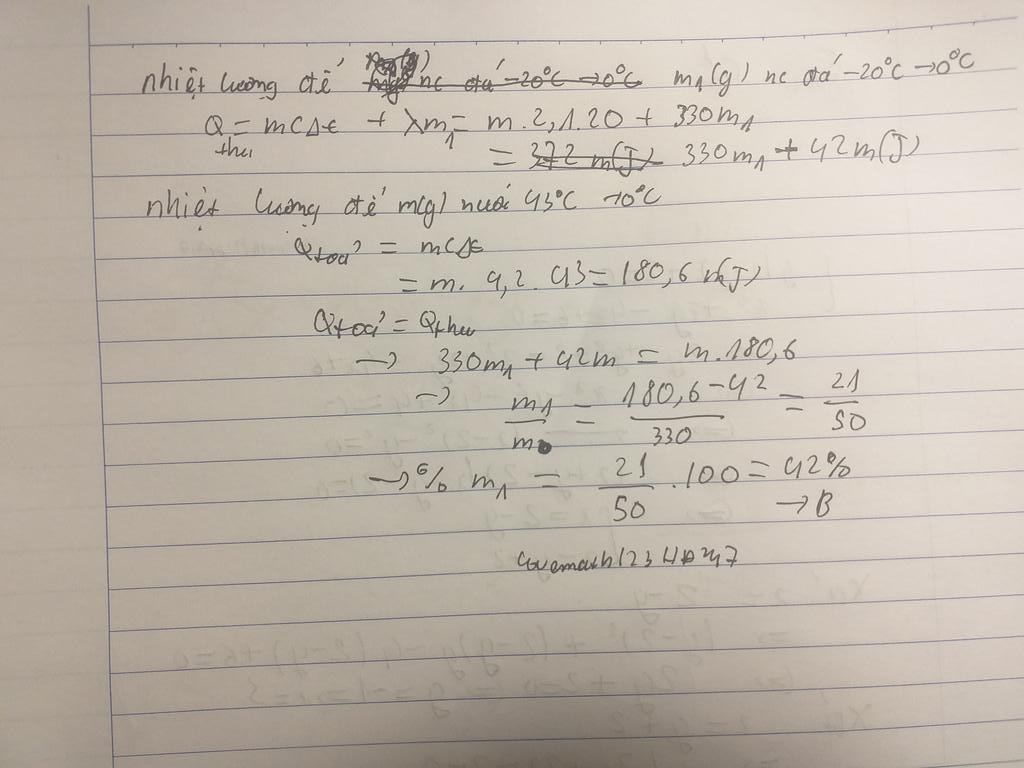 nhiệt lượng để m₁(g) nc đá -20°C → 0°C
Q thu = mcΔt + λm₁ = m.2,1.20 + 330m₁
= 372 m(J) 330m₁ + 42m(J)
nhiệt lượng để m(g) nước 43°C → 0°C
Qtoả = mcΔt
= m. 4,2. 43 = 180,6 m(J)
Qtoả = Qthu
→ 330m₁ + 42m = m.180,6
→ m₁/m = (180,6 - 42)/330 = 21/50
→ % m₁ = 21/50 .100 = 42%
→ B